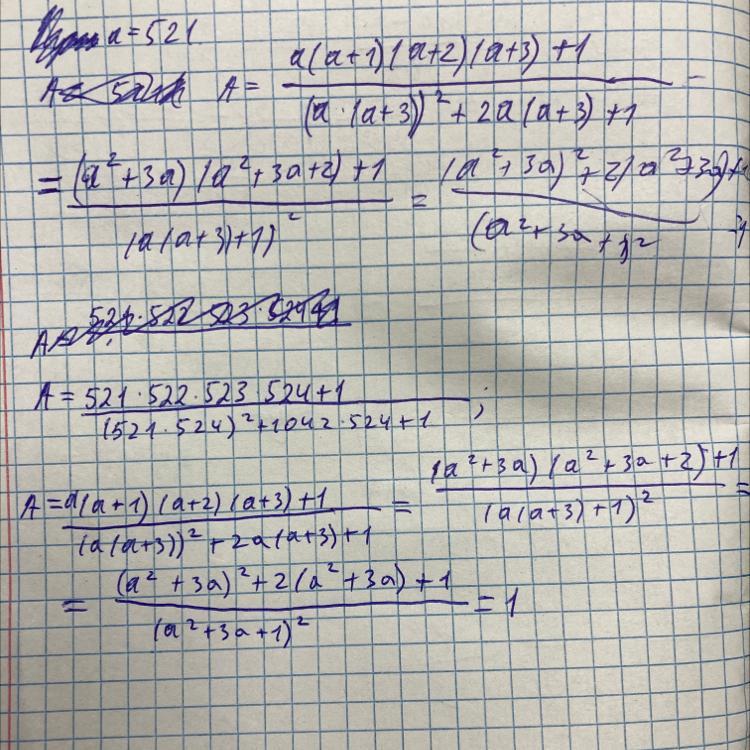 a = 521
A = a(a+1)(a+2)(a+3)+1 / (a·(a+3))² + 2a(a+3)+1 =
= (a²+3a)(a²+3a+2)+1 / (a(a+3)+1)² = (a²+3a)²+2(a²+3a)+1 / (a²+3a+1)²
A = 521·522·523·524+1 / (521·524)²+1042·524+1 ;
A = a(a+1)(a+2)(a+3)+1 / (a(a+3))²+2a(a+3)+1 = (a²+3a)(a²+3a+2)+1 / (a(a+3)+1)² =
= (a²+3a)²+2(a²+3a)+1 / (a²+3a+1)² = 1